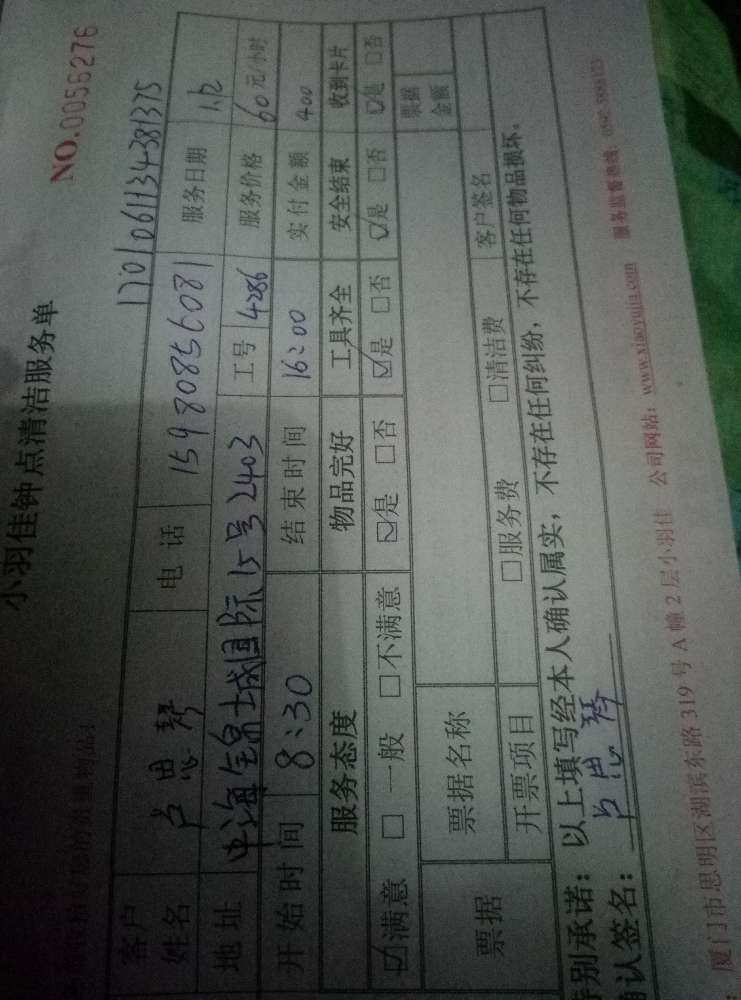 小羽佳钟点清洁服务单
NO.0056276
1701061134381375
客户姓名 卢思琴 电话 15980856081 服务日期 1.12
地址 中海锦城国际15号2403 工号 4286 服务价格 60元/小时
开始时间 8:30 结束时间 16:00 实付金额 400
服务态度 物品完好 工具齐全 安全结束 收到卡片
☑满意 □一般 □不满意 ☑是 □否 ☑是 □否 ☑是 □否 ☑是 □否
票据 票据名称 票据金额
开票项目 □服务费 □清洁费 客户签名
别承诺：以上填写经本人确认属实，不存在任何纠纷，不存在任何物品损坏。
认签名：卢思琴
厦门市思明区湖滨东路319号A幢2层小羽佳 公司网站：www.xiaoyujia.com 服务监督热线：